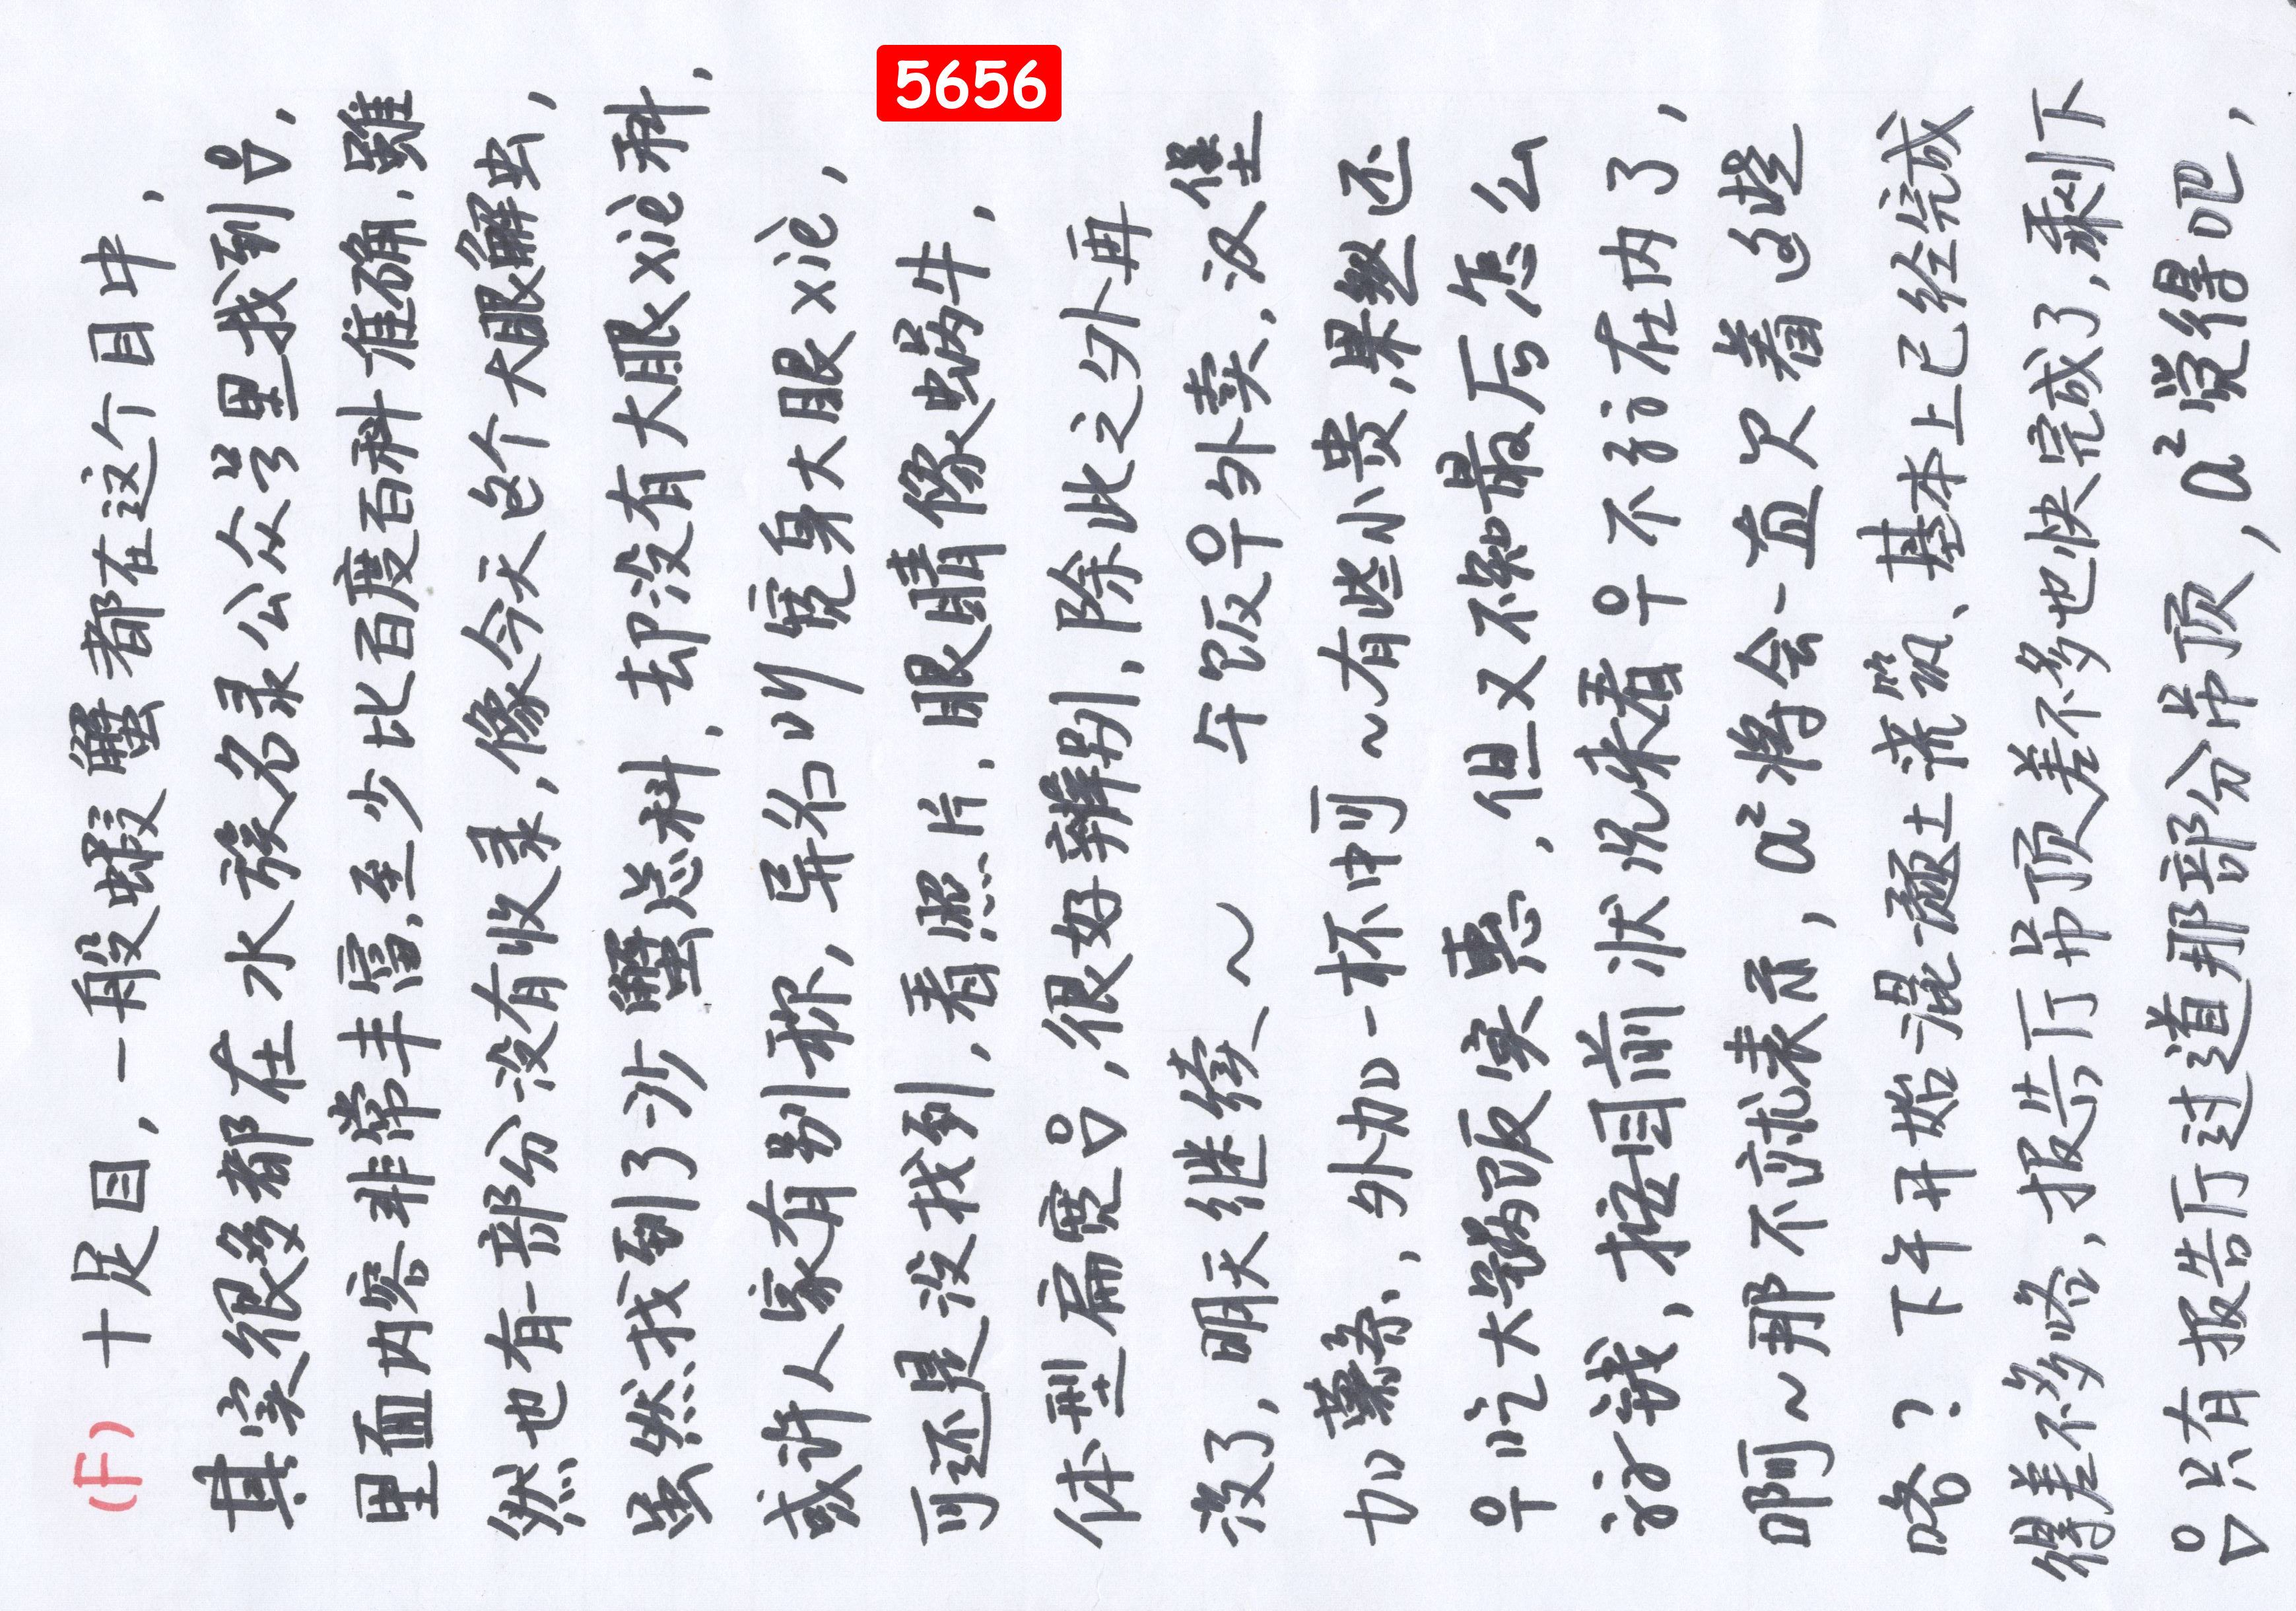 5656
(F) 十足目，一般蝦蟹都在这个目中，
其实很多都在水族名录公众号里找到，
里面内容非常丰富，至少比百度百科准确，雖
然也有一部分没有收录，像今天这个大眼解虫，
虽然找到了沙蟹总科，却没有大眼xiè科，
或许人家有别称，异名叫宽身大眼xiè，
可还是没找到，看照片，眼睛像蜗牛，
体型扁宽，很好辨别，除此之外再
没了，明天继续~ 午饭外卖，汉堡
加薯条，外加一杯中可~有些小贵，果然还
吃大锅饭实惠，但又不知最后怎么
说，按目前状况来看不在内了，
啊~那不就表示，a²将会一直欠着这些
咯？下午开始混凝土浇筑、基本上已经完成
得差不多咯，报告厅吊顶差不多也快完成了，剩下
只有报告厅过道那部分吊顶，a²觉得吧，